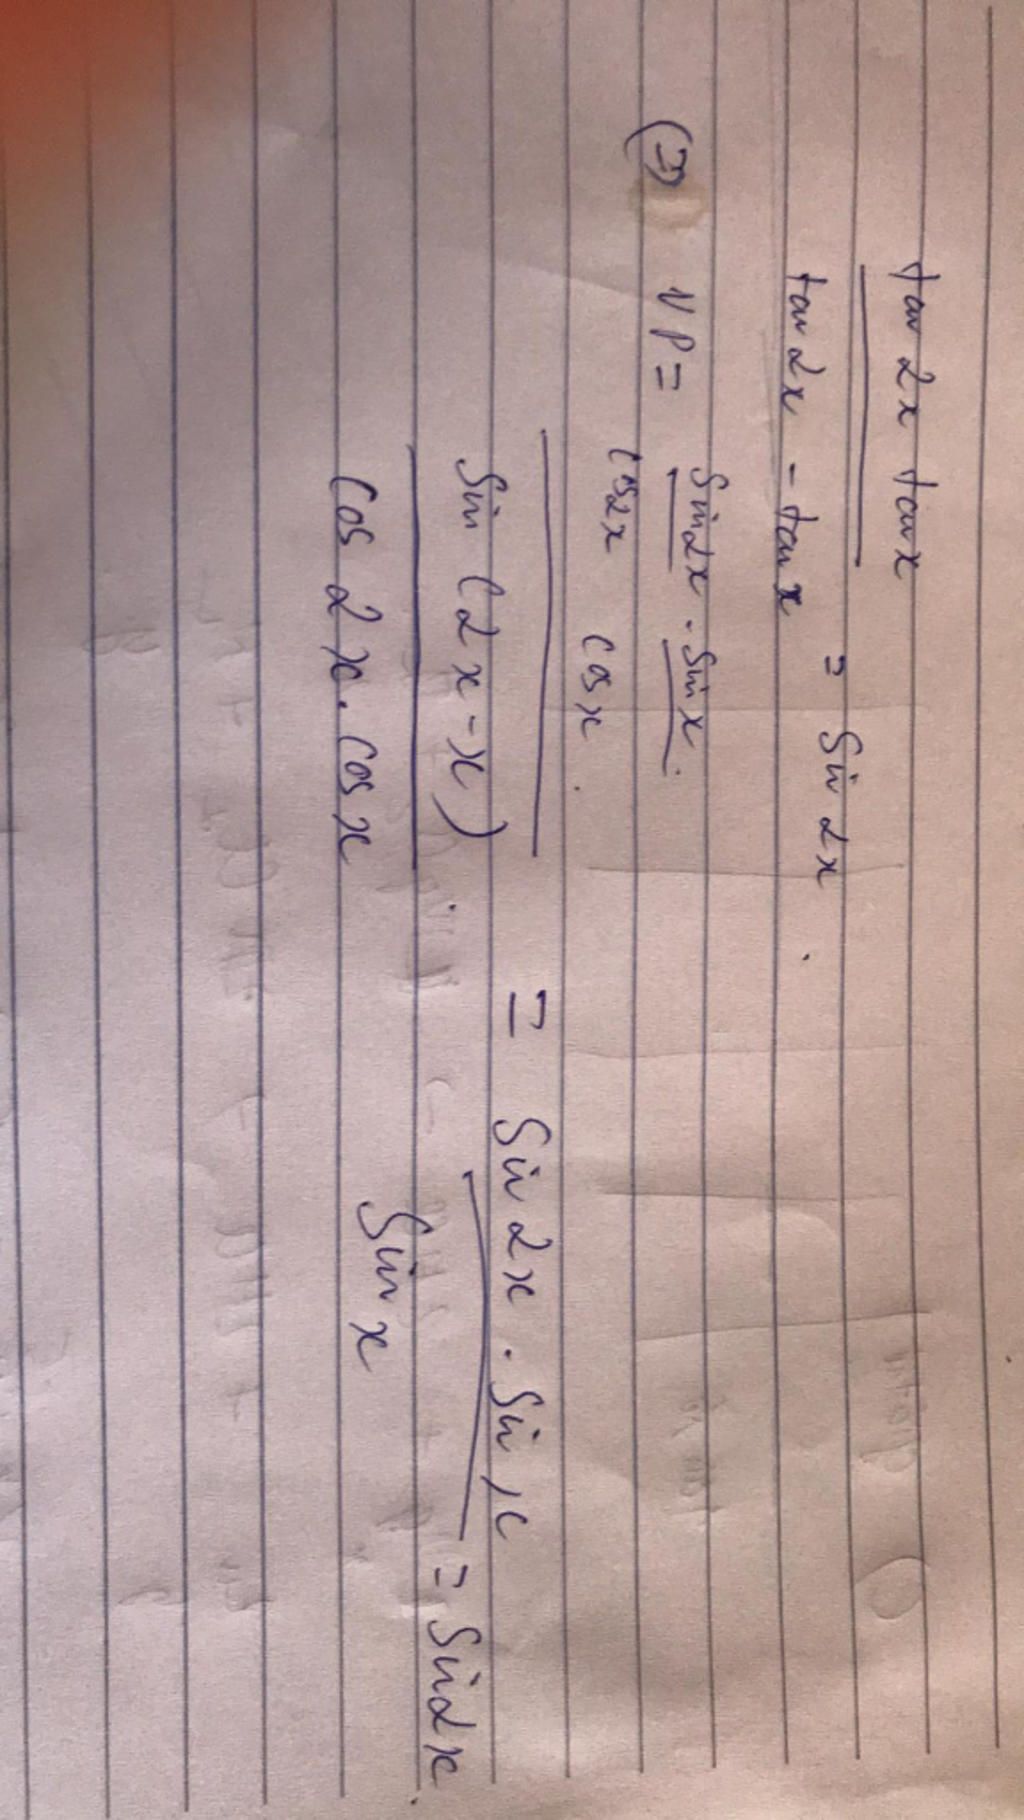 tan 2x tan x
tan 2x - tan x = Sin 2x .
VP = Sin2x . Sin x
cos2x cos x
Sin (2x - x)
Cos 2x . Cos x
= Sin 2x . Sin x
Sin x
= Sin2x